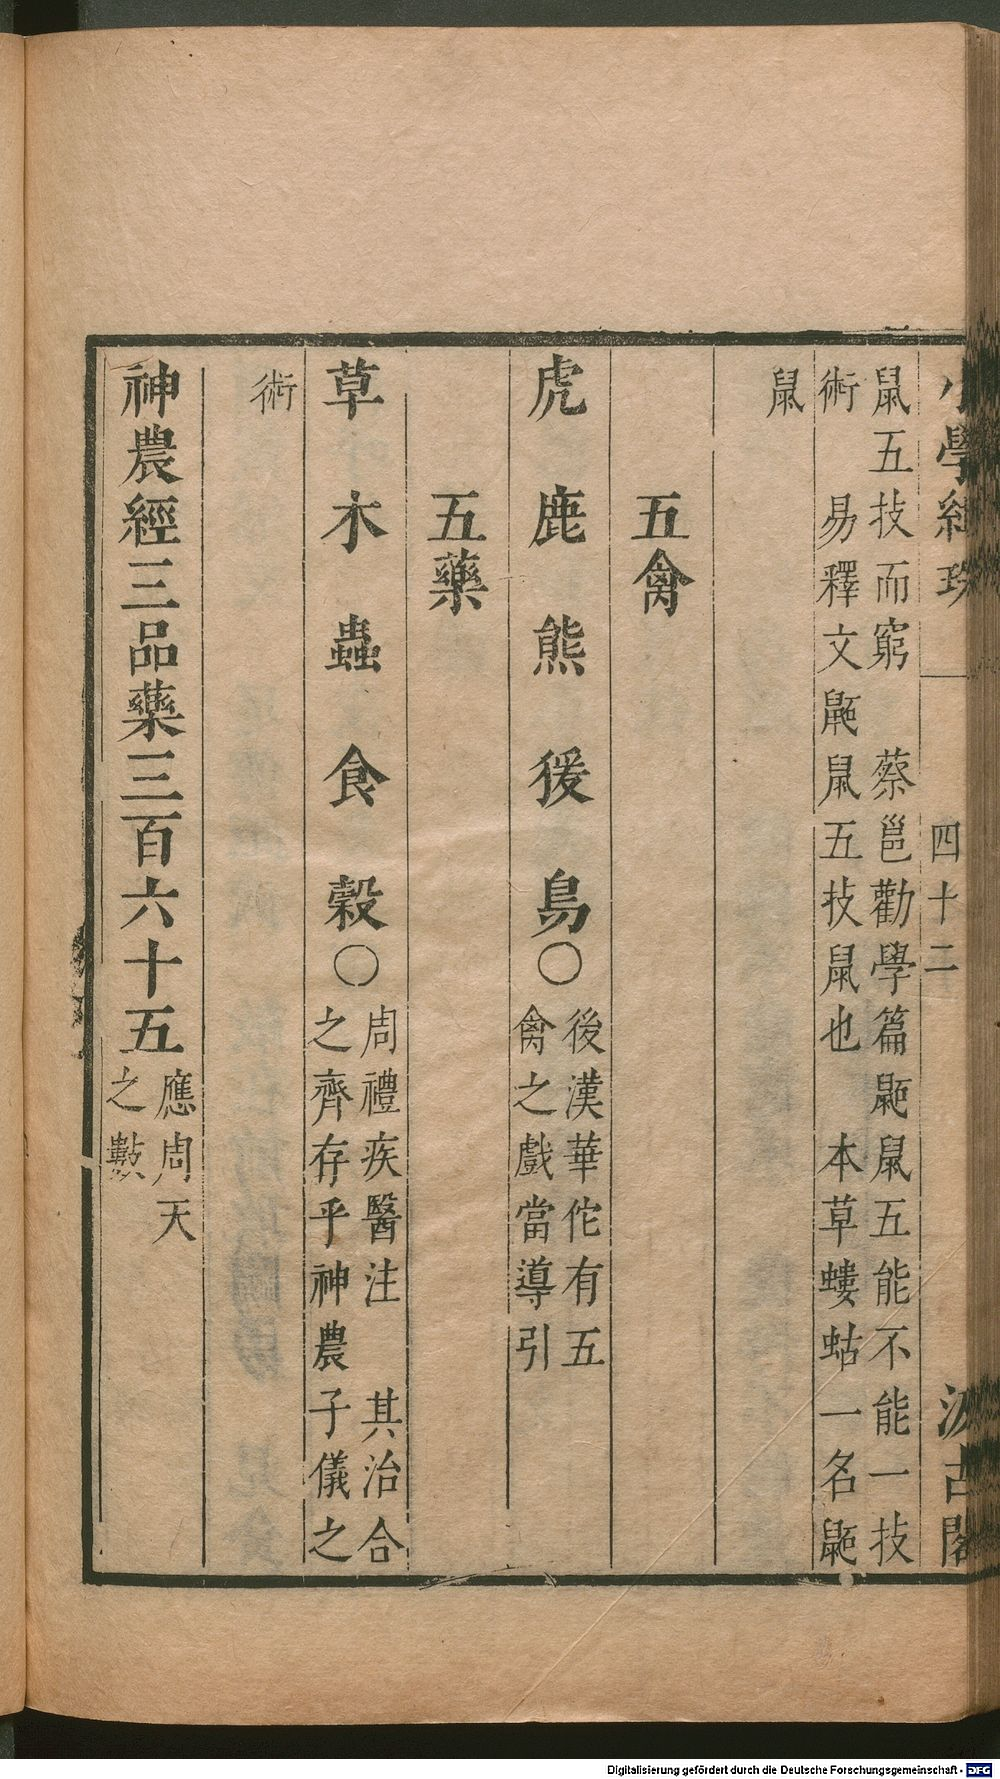 小學紺珠 四十二 汲古閣
鼠五技而窮 蔡邕勸學篇鼫鼠五能不能一技
術 易釋文鼫鼠五技鼠也 本草螻蛄一名鼫
鼠
五禽
虎 鹿 熊 猨 鳥○後漢華佗有五
禽之戲當導引
五藥
草 木 蟲 食 穀○周禮疾醫注 其治合
之齊存乎神農子儀之
術
神農經三品藥三百六十五應周天
之數
Digitalisierung gefördert durch die Deutsche Forschungsgemeinschaft - DFG